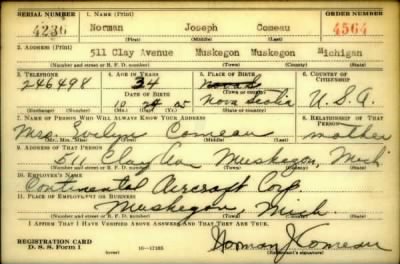 SERIAL NUMBER 1. NAME (Print) ORDER NUMBER
4236 Norman Joseph Comeau 4564
(First) (Middle) (Last)
2. ADDRESS (Print)
511 Clay Avenue Muskegon Muskegon Michigan
(Number and street or R. F. D. number) (Town) (County) (State)
3. TELEPHONE 4. AGE IN YEARS 5. PLACE OF BIRTH 6. COUNTRY OF CITIZENSHIP
246494 34
DATE OF BIRTH (Town or county)
10 24 Nova Scotia U.S.A.
(Exchange) (Number) (Mo.) (Day) (Yr.) (State or country)
7. NAME OF PERSON WHO WILL ALWAYS KNOW YOUR ADDRESS 8. RELATIONSHIP OF THAT PERSON
Mrs. Evelyn Comeau mother
(Mr., Mrs., Miss) (First) (Middle) (Last)
9. ADDRESS OF THAT PERSON
511 Clay Ave Muskegon, Mich
(Number and street or R. F. D. number) (Town) (County) (State)
10. EMPLOYER'S NAME
Continental Aircraft Corp
11. PLACE OF EMPLOYMENT OR BUSINESS
Muskegon Mich.
(Number and street or R. F. D. number) (Town) (County) (State)
I AFFIRM THAT I HAVE VERIFIED ABOVE ANSWERS AND THAT THEY ARE TRUE.
REGISTRATION CARD
D. S. S. Form 1 (over) 16-17105 Norman J Comeau
(Registrant's signature)